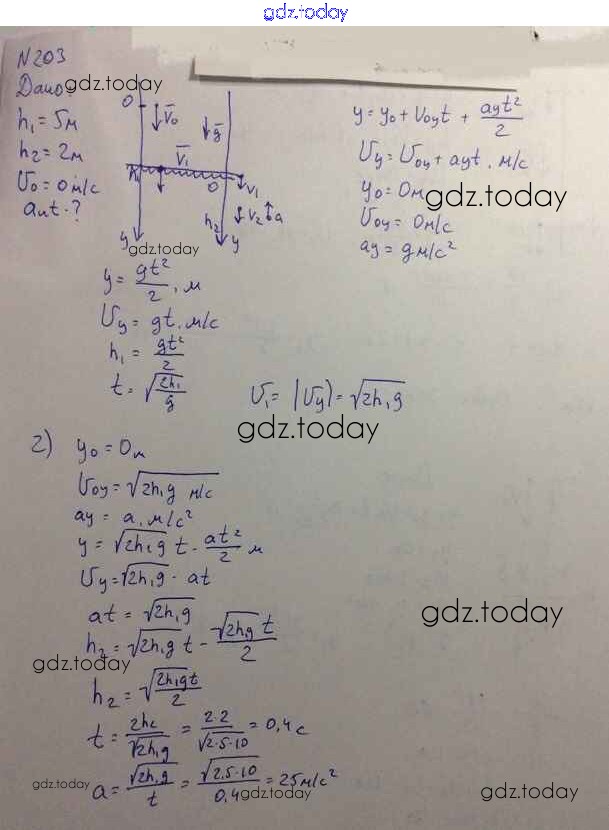 gdz.today
N203
Дано:
gdz.today
h₁ = 5м
h₂ = 2м
υ₀ = 0м/с
a иt - ?
0
V₀
g
V₁
0
V₁
h₂
V₂
a
y
y
gdz.today
y = y₀ + υ₀yt + ayt²/2
υy = υ₀y + ayt, м/с
y₀ = 0м
gdz.today
υ₀y = 0м/с
ay = g м/с²
y = gt²/2, м
υy = gt, м/с
h₁ = gt²/2
t = √(2h₁/g)
υ₁ = |υy| = √2h₁g
gdz.today
2) y₀ = 0м
υ₀y = √2h₁g м/с
ay = a, м/с²
y = √2h₁g t - at²/2 м
υy = √2h₁g - at
at = √2h₁g
gdz.today
h₂ = √2h₁g t - √2hg t/2
gdz.today
h₂ = √2h₁gt/2
t = 2h₂/√2h₁g = 2·2/√2·5·10 = 0,4 с
a = √2h₁g/t = √2·5·10/0,4 = 25м/с²
gdz.today
gdz.today
gdz.today